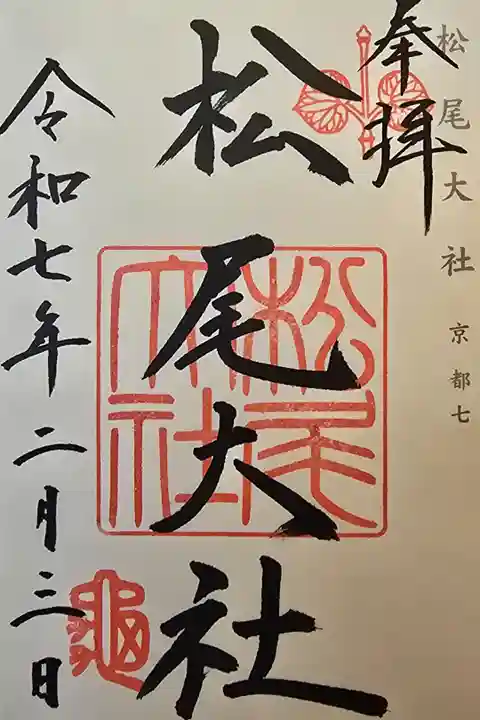 松尾大社 京都七
奉拝
松尾大社
松尾大社
令和七年二月三日
龜